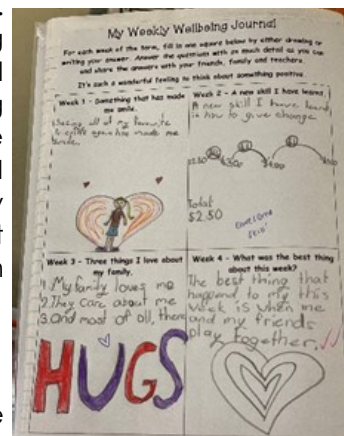 My Weekly Wellbeing Journal
For each week of the term, fill in one square below by either drawing or
writing your answer. Answer the questions with as much detail as you can
and share the answers with your friends, family and teachers.
It's such a wonderful feeling to think about something positive.
Week 1 - Something that has made
me smile.
Seeing all of my favourite
made me
Week 2 - A new skill I have learned.
A new skill I have
is how to give change
Total
$2.50
Week 3 - Three things I love about
my family.
1. My family loves me
2. They care about me
3. And most of all, there
HUGS
Week 4 - What was the best thing
about this week?
The best thing that
happend to my this
week is when me
and my friends
play together.